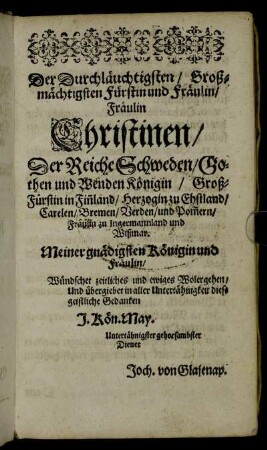 Der Durchläuchtigsten/ Groß-
mächtigsten Fürstin und Fräulin/
Fräulin
Christinen/
Der Reiche Schweden/ Go-
then und Wenden Königin / Groß-
Fürstin in Fiñland/ Herzogin zu Ehstland/
Carelen/ Bremen/ Verden/ und Pom̃ern/
Fräulin zu Ingermannland und
Wißmar.
Meiner gnädigsten Königin und
Fräulin/
Wündschet zeitliches und ewiges Wolergehen/
Und übergiebet in aller Untertähnigkeit diese
geistliche Gedanken
J. Kön. May.
Untertähnigster gehorsambster
Diener
Joch. von Glasenap.